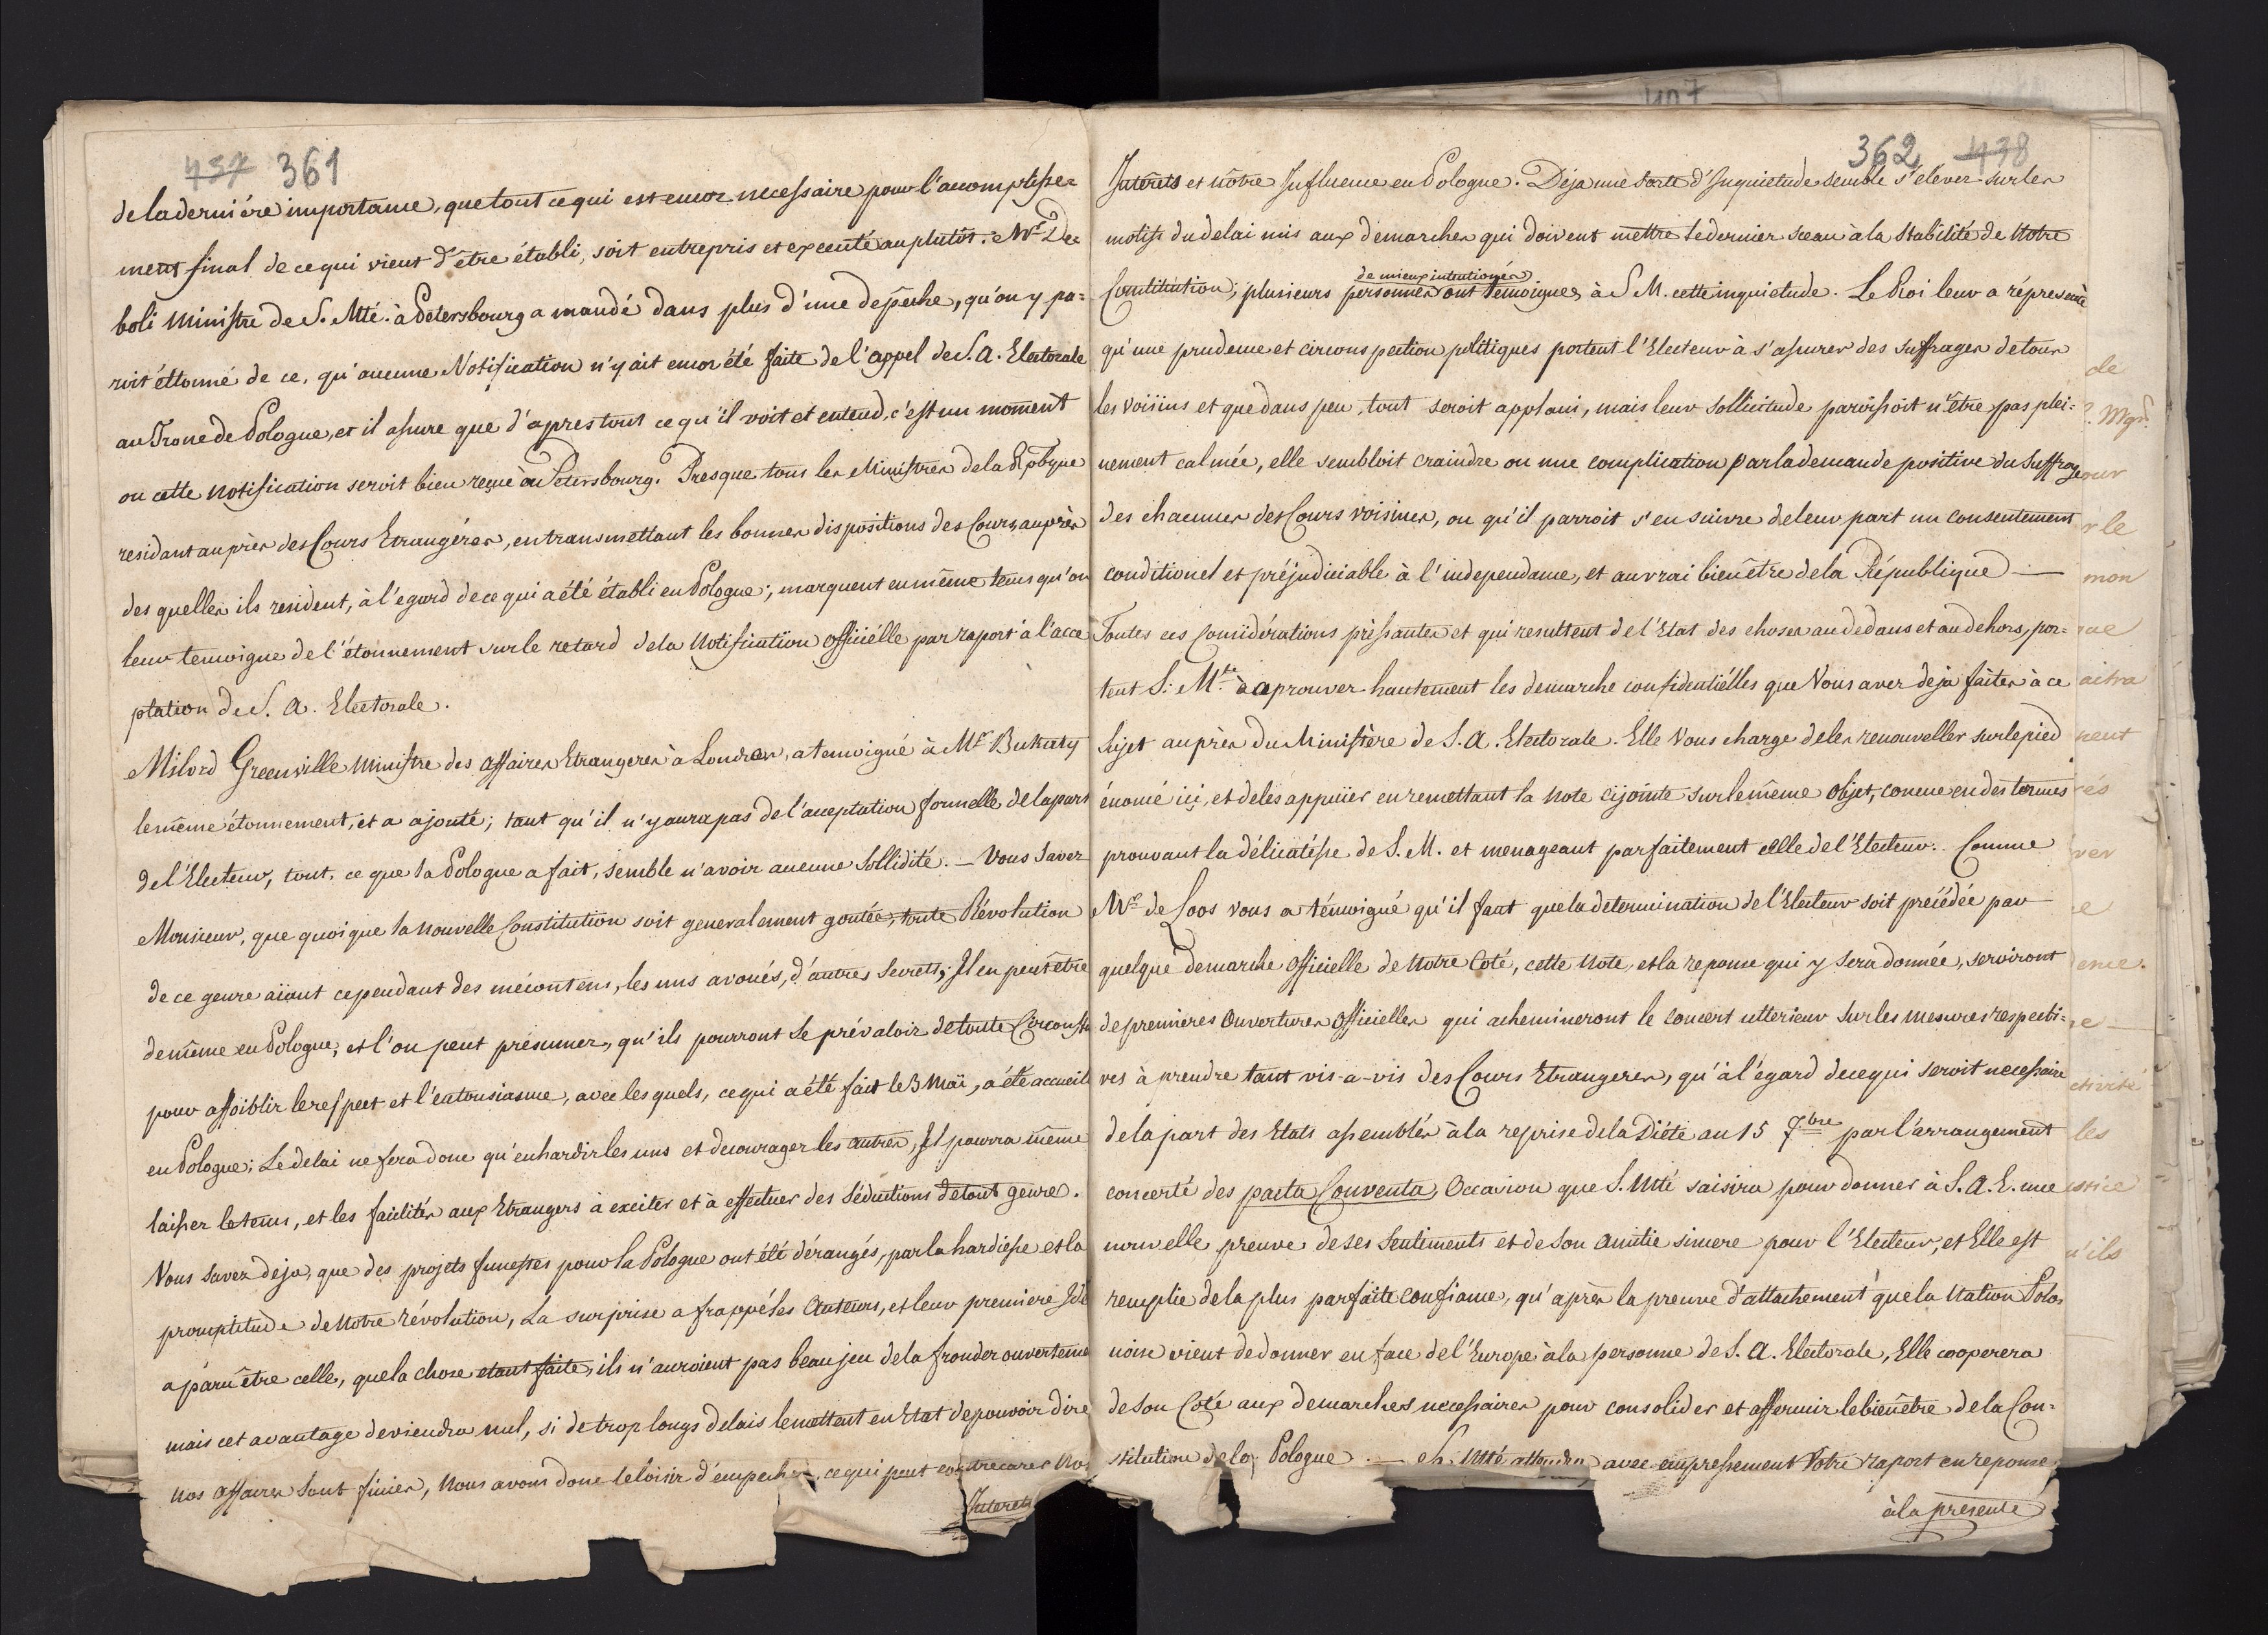 437 361
de la derniére importance, que tout ce qui est encor necessaire pour l'accomplisse=
ment final de ce qui vient d'être établi, soit entrepris et executé au plutôt. Mr De
boli Ministre de S. Mté. à Petersbourg a mandé dans plus d'une depêche, qu'on y pa=
roit éttonné de ce, qu'aucune Notification n'y ait encor été faite de l'appel de S. A. Electorale
au Trone de Pologne, et il assure que d'apres tout ce qu'il voit et entend, c'est un moment
ou cette notification seroit bien reçue à Petersbourg. Presque tous les Ministres de la Rpbque
residant auprès des Cours Etrangéres, en transmettant les bonnes dispositions des Cours, auprès
des quelles ils resident, à l'egard de ce qui a été établi en Pologne; marquent en même tems qu'on
leur temoigne de l'étonnement sur le retard de la Notification officiélle par raport à l'acce
ptation de S. A. Electorale.
Milord Greenville Ministre des affaires Etrangeres à Londres, a temoigné à Mr Bukaty
le même étonnement, et a ajouté; tant qu'il n'y aura pas de l'acceptation formelle de la part
de l'Electeur, tout, ce que la Pologne a fait, semble n'avoir aucune Sollidité. — Vous Savez
Monsieur, que quoique la nouvelle Constitution soit generalement goutée, toute Révolution
de ce genre aïant cependant des mécontens, les uns avoués, d'autres Secrets; Il en peut être
de même en Pologne; et l'on peut présumer, qu'ils pourront Se prévaloir de toute Circonsta
pour affoiblir le respect et l'entousiasme, avec les quels, ce qui a été fait le 3 Maï, a été accueil
en Pologne; Le delai ne fera donc qu'enhardir les uns et decourager les autres, Il pourra même
laisser le tems, et les facilités aux Etrangers à exciter et à effectuer des Séductions de tout genre.
Vous Savez deja, que des projets funestes pour la Pologne ont été dérangés, par la hardiesse et la
promptitude de Notre révolution, La surprise a frappé les Auteurs, et leur premiere Idé
a parû être celle, que la chose etant faite, ils n'auroient pas beau jeu de la fronder ouverteme
mais cet avantage deviendra nul, si de trop longs delais le mettent en Etat de pouvoir dire
nos affaires Sont finies, Nous avons donc le loisir d'empecher, ce qui peut contrecarer Nos
Interets
362 438
Intérets et nôtre Influence en Pologne. Deja une Sorte d'Inquietude semble s'elever sur les
motifs du delai mis aux demarches qui doivent mettre le dernier sceau à la Stabilité de Notre
de mieux intentionnés
Constitution; plusieurs personnes ont témoignés à S M. cette inquietude. Le Roi leur a répresenté
qu'une prudence et circonspection politiques portent l'Electeur à s'assurer des Suffrages de tous
les voisins et que dans peu, tout seroit applani, mais leur Sollicitude paroissoit n'être pas plei=
nement calmée, elle sembloit craindre ou une complication par la demande positive du Suffrage
des chacunes des Cours voisines, ou qu'il parroit s'en suivre de leur part un consentement
conditionel et préjudiciable à l'independance, et au vrai bien être de la République —
Toutes ces Considérations préssantes et qui resultent de l'Etat des choses au dedans et au dehors, por=
tent S. Mté à aprouver hautement les demarche confidentiélles que Vous aves deja faites à ce
Sujet auprès du Ministère de S. A. Electorale. Elle Vous charge de les renouveller sur le pied
énoncé ici, et de les appuïer en remettant la Note cijointe sur le même objet, concue en des termes
prouvant la délicatesse de S. M. et menageant parfaitement celle de l'Electeur. Comme
Mr de Loos vous a témoigné qu'il faut que la determination de l'Electeur soit précédée par
quelque demarche officielle de Notre Coté, cette Note, et la reponse qui y Sera donnée, serviront
de premières Ouvertures Officielles qui achemineront le concert ulterieur Sur les Mesures respecti=
ves à prendre tant vis-a-vis des Cours Etrangeres, qu'à l'égard de ce qui seroit necessaire
de la part des Etats assemblés à la reprise de la Diéte au 15 7bre par l'arrangement
concerté des pacta Conventa, Occasion que S. Mté saisira pour donner à S. A. E. une
nouvelle preuve de ses Sentiments et de Son amitie sincere pour l'Electeur, et Elle est
remplie de la plus parfaite confiance, qu'après la preuve d'attachement que la Nation Polo=
noise vient de donner en face de l'Europe à la personne de S. A. Electorale, Elle cooperera
de Son Coté aux demarches necessaires pour consolider et affermir le bien être de la Con=
stitution de la Pologne. — S. Mté attendra avec empressement Votre raport en reponse
à la présente